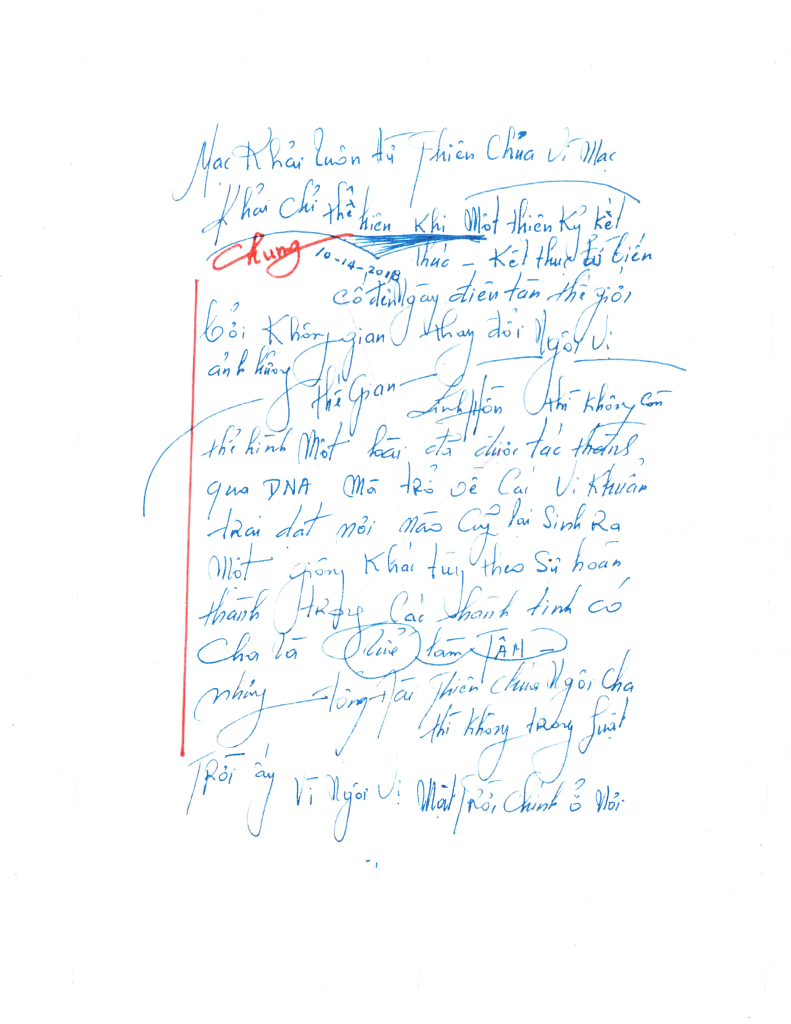 Mạc Khải luôn từ Thiên Chúa vì Mạc
Khải chỉ thể hiện khi Một thiên Kỷ kết
Chung 10-14-2018 thúc - Kết thúc từ biến
cố đến Ngày điên tàn thế giới
bởi Không gian thay đổi Ngôi Vị
ảnh hưởng
thế Gian Linh Hồn thì không còn
thể hình Một loài đã được tác thành
qua DNA Mà trở về Các Vi Khuẩn
trái đất nơi nào Cũg lại Sinh Ra
Một giống Khác tùy theo Sự hoàn
thành trong Các hành tinh có
Cha là làm TÂM -
nhưng tổng tài Thiên chúa Ngôi Cha
thì không trong Mặt
Trời ấy Vì Ngôi Vị Mặt Trời Chính ở Nơi